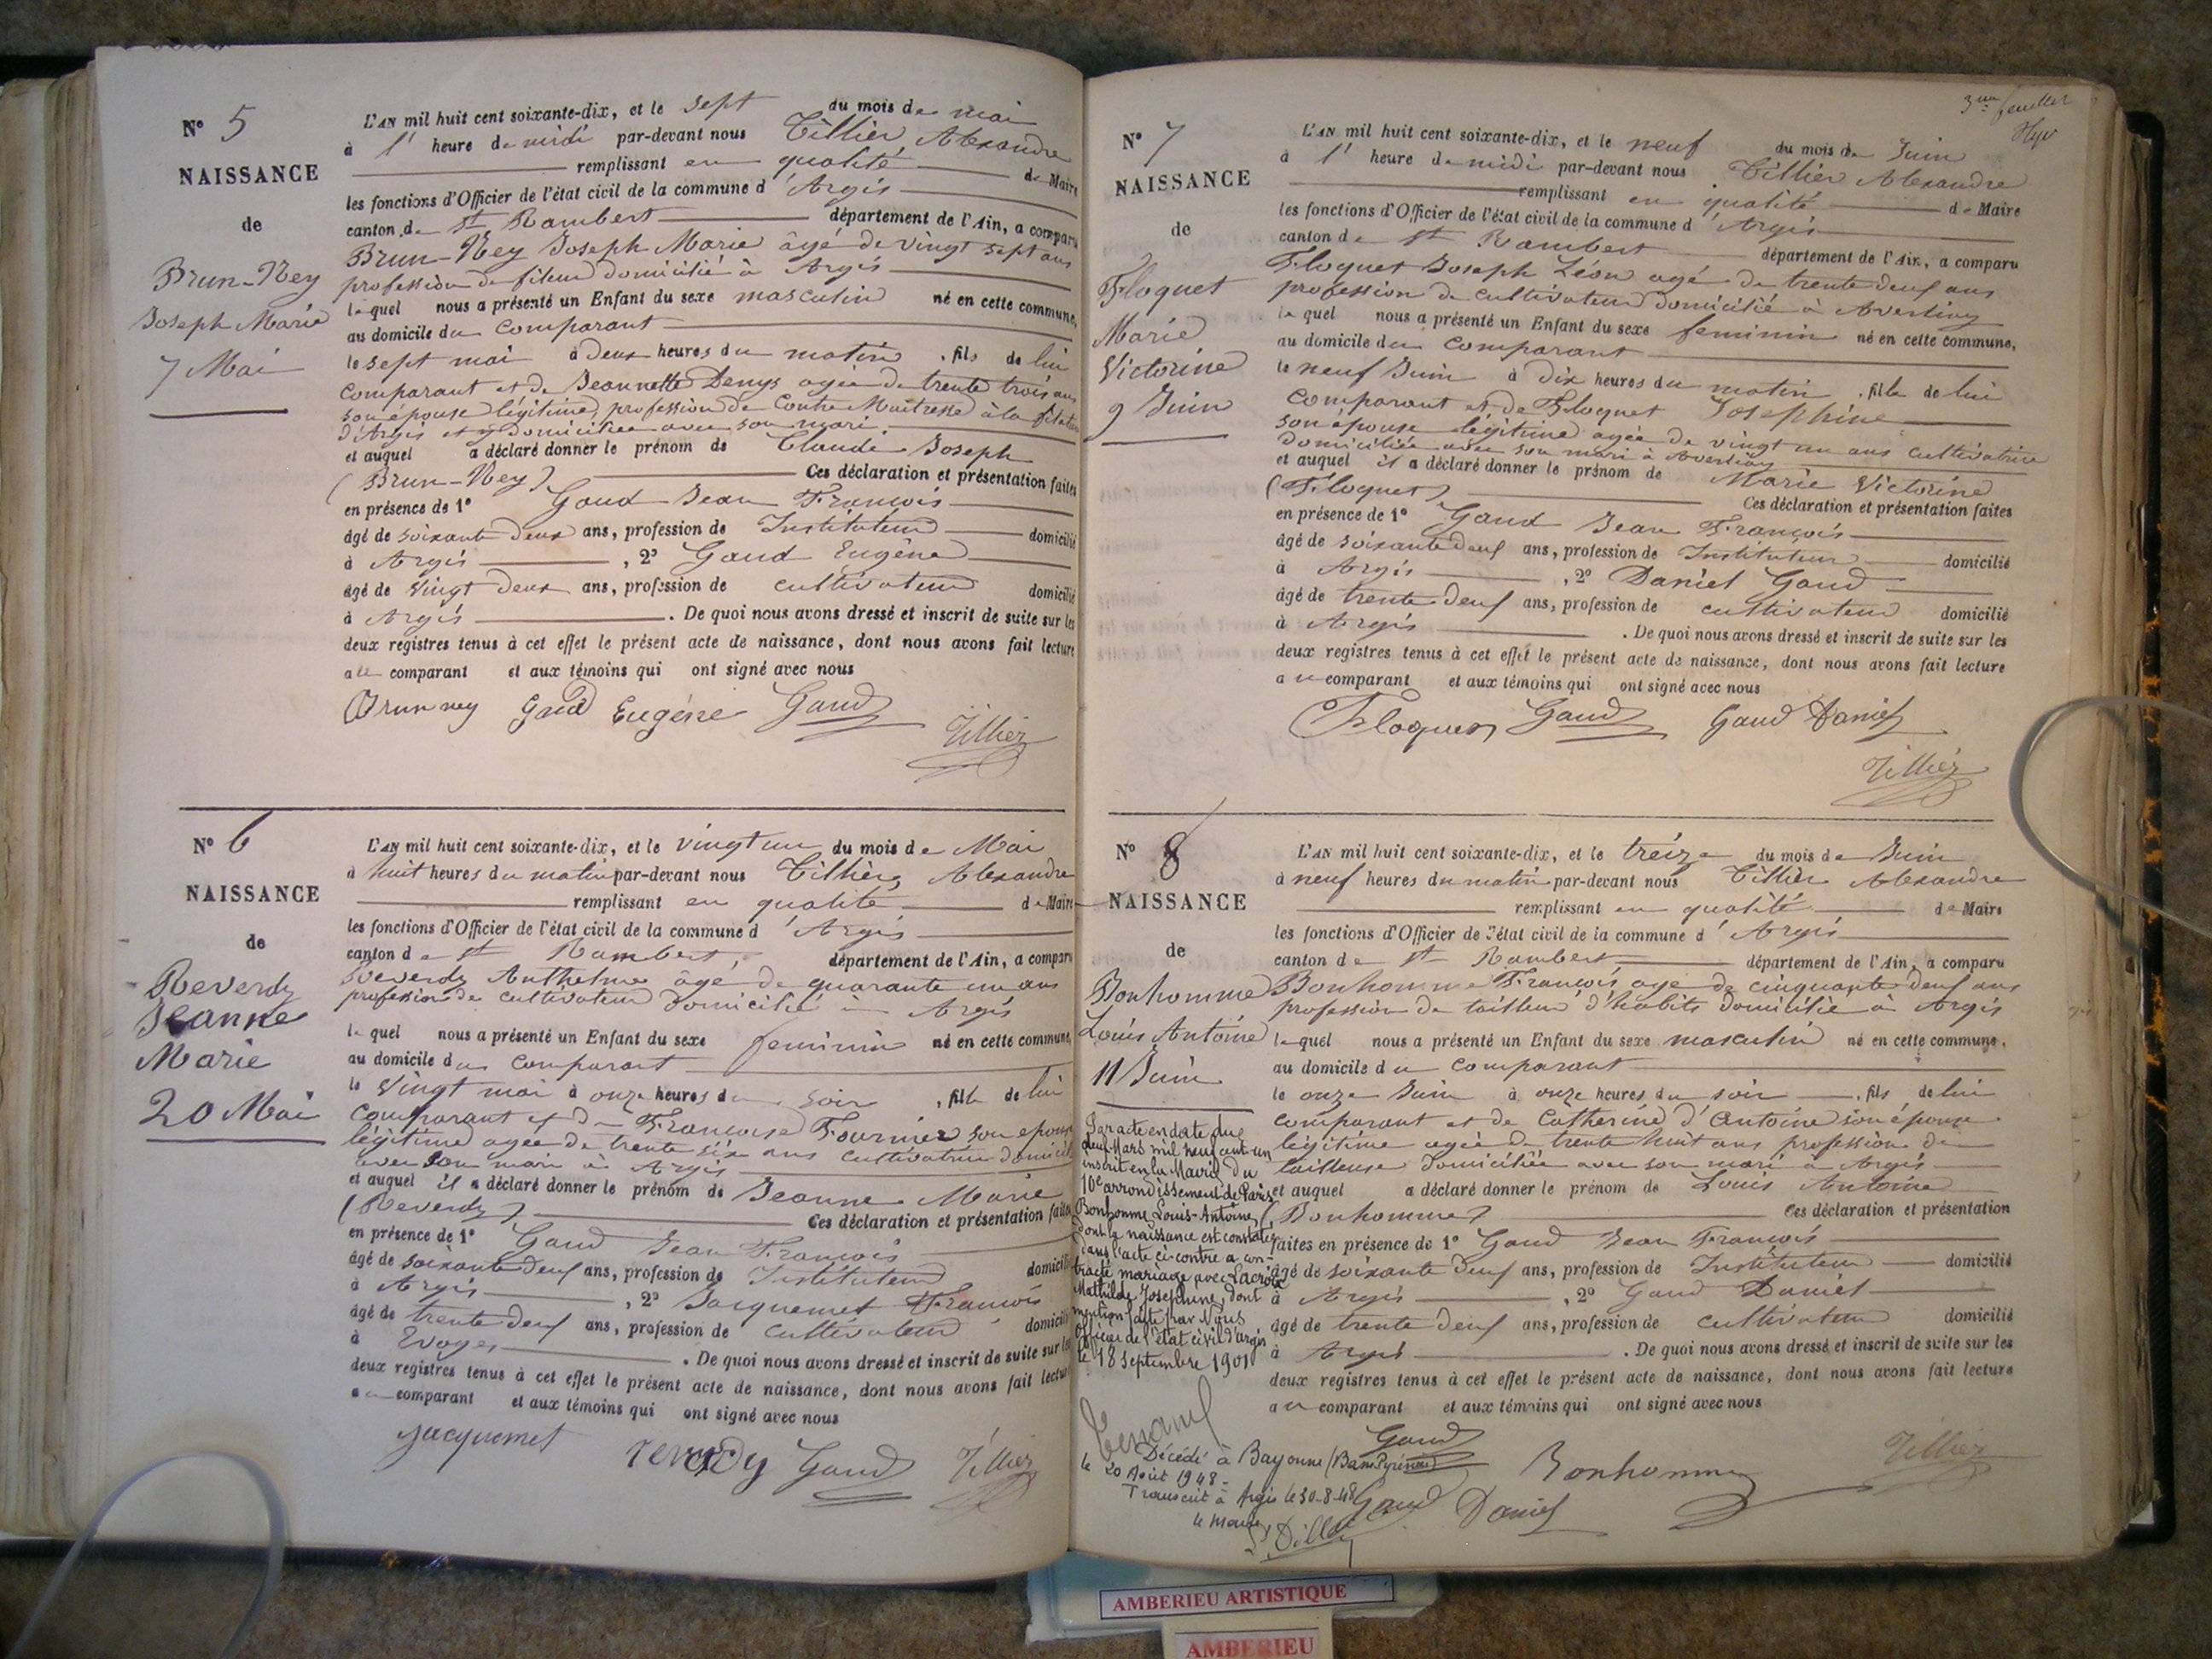 N° 5
NAISSANCE
de
Brun-Ney
Joseph Marie
7 Mai
L'AN mil huit cent soixante-dix, et le sept du mois de mai
à l' heure de midi par-devant nous Tillier Alexandre
remplissant en qualité de Maire
les fonctions d'Officier de l'état civil de la commune d'Argis
canton de St Rambert département de l'Ain, a comparu
Brun-Ney Joseph Marie âgé de vingt sept ans
profession de fileur domicilié à Argis
lequel nous a présenté un Enfant du sexe masculin né en cette commune,
au domicile du comparant
le sept mai à deux heures du matin, fils de lui
comparant et de Jeannette Denys agée de trente trois ans
son épouse légitime, profession de Contre Maitresse à la filature
d'Argis et y domiciliée avec son mari
et auquel a déclaré donner le prénom de Claude Joseph
(Brun-Ney) Ces déclaration et présentation faites
en présence de 1° Gaud Jean François
âgé de soixante deux ans, profession de Instituteur domicilié
à Argis, 2° Gaud Eugène
âgé de vingt deux ans, profession de cultivateur domicilié
à Argis. De quoi nous avons dressé et inscrit de suite sur les
deux registres tenus à cet effet le présent acte de naissance, dont nous avons fait lecture
au comparant et aux témoins qui ont signé avec nous
Brunney Gaud Eugéne Gaud
Tillier
N° 6
NAISSANCE
de
Reverdy
Jeanne
Marie
20 Mai
L'AN mil huit cent soixante-dix, et le vingt un du mois de Mai
à huit heures du matin par-devant nous Tillier Alexandre
remplissant en qualité de Maire
les fonctions d'Officier de l'état civil de la commune d'Argis
canton de St Rambert, département de l'Ain, a comparu
Reverdy Anthelme âgé de quarante un ans
profession de cultivateur domicilié à Argis
lequel nous a présenté un Enfant du sexe feminin né en cette commune,
au domicile du comparant
le vingt mai à onze heures du soir, fille de lui
comparant et de Françoise Fournier son epouse
légitime agée de trente six ans cultivatrice domicilié
avec son mari à Argis
et auquel il a déclaré donner le prénom de Jeanne Marie
(Reverdy) Ces déclaration et présentation faites
en présence de 1° Gaud Jean François
âgé de soixante deux ans, profession de Instituteur domicilié
à Argis, 2° Jacquemet François
âgé de trente deux ans, profession de cultivateur domicilié
à Evoges. De quoi nous avons dressé et inscrit de suite sur les
deux registres tenus à cet effet le présent acte de naissance, dont nous avons fait lecture
au comparant et aux témoins qui ont signé avec nous
Jacquemet reverdy Gaud Tillier
3me feuillet
N° 7
NAISSANCE
de
Floquet
Marie
Victorine
9 Juin
L'AN mil huit cent soixante-dix, et le neuf du mois de Juin
à l' heure de midi par-devant nous Tillier Alexandre
remplissant en qualité de Maire
les fonctions d'Officier de l'état civil de la commune d'Argis
canton de St Rambert département de l'Ain, a comparu
Floquet Joseph Léon agé de trente deux ans
profession de cultivateur domicilié à Averliaz
lequel nous a présenté un Enfant du sexe feminin né en cette commune,
au domicile du comparant
le neuf Juin à dix heures du matin, fille de lui
comparant et de Floquet Josephine
son épouse légitime agée de vingt un ans cultivatrice
domiciliée avec son mari à Averliaz
et auquel il a déclaré donner le prénom de Marie Victorine
(Floquet) Ces déclaration et présentation faites
en présence de 1° Gaud Jean François
âgé de soixante deux ans, profession de Instituteur domicilié
à Argis, 2° Daniel Gaud
âgé de trente deux ans, profession de cultivateur domicilié
à Argis. De quoi nous avons dressé et inscrit de suite sur les
deux registres tenus à cet effet le présent acte de naissance, dont nous avons fait lecture
au comparant et aux témoins qui ont signé avec nous
Floquet Gaud Gaud Daniel
Tillier
N° 8
NAISSANCE
de
Bonhomme
Louis Antoine
11 Juin
Par acte en date du
deux Mars mil neuf cent un
inscrit en la Mairie du
10e arrondissement de Paris
Bonhomme Louis-Antoine,
dont la naissance est constatée
dans l'acte ci-contre a con-
tracté mariage avec Lacroix
Mathilde Josephine, dont
mention faite par Nous
Officier de l'état civil d'Argis
le 18 septembre 1901
Décédé à Bayonne (Basses Pyrénées)
le 20 Août 1948 -
Transcrit à Argis le 30-8-48
le Maire,
L'AN mil huit cent soixante-dix, et le treize du mois de Juin
à neuf heures du matin par-devant nous Tillier Alexandre
remplissant en qualité de Maire
les fonctions d'Officier de l'état civil de la commune d'Argis
canton de St Rambert département de l'Ain, a comparu
Bonhomme François agé de cinquante deux ans
profession de tailleur d'habits domicilié à Argis
lequel nous a présenté un Enfant du sexe masculin né en cette commune,
au domicile du comparant
le onze Juin à onze heures du soir, fils de lui
comparant et de Catherine d'Antoine son épouse
légitime agée de trente huit ans profession de
tailleuse domiciliée avec son mari à Argis
et auquel a déclaré donner le prénom de Louis Antoine
(Bonhomme) Ces déclaration et présentation
faites en présence de 1° Gaud Jean François
âgé de soixante deux ans, profession de Instituteur domicilié
à Argis, 2° Gaud Daniel
âgé de trente deux ans, profession de cultivateur domicilié
à Argis. De quoi nous avons dressé et inscrit de suite sur les
deux registres tenus à cet effet le présent acte de naissance, dont nous avons fait lecture
au comparant et aux témoins qui ont signé avec nous
Gaud Bonhomme Tillier
Gaud Daniel
AMBERIEU ARTISTIQUE
AMBERIEU